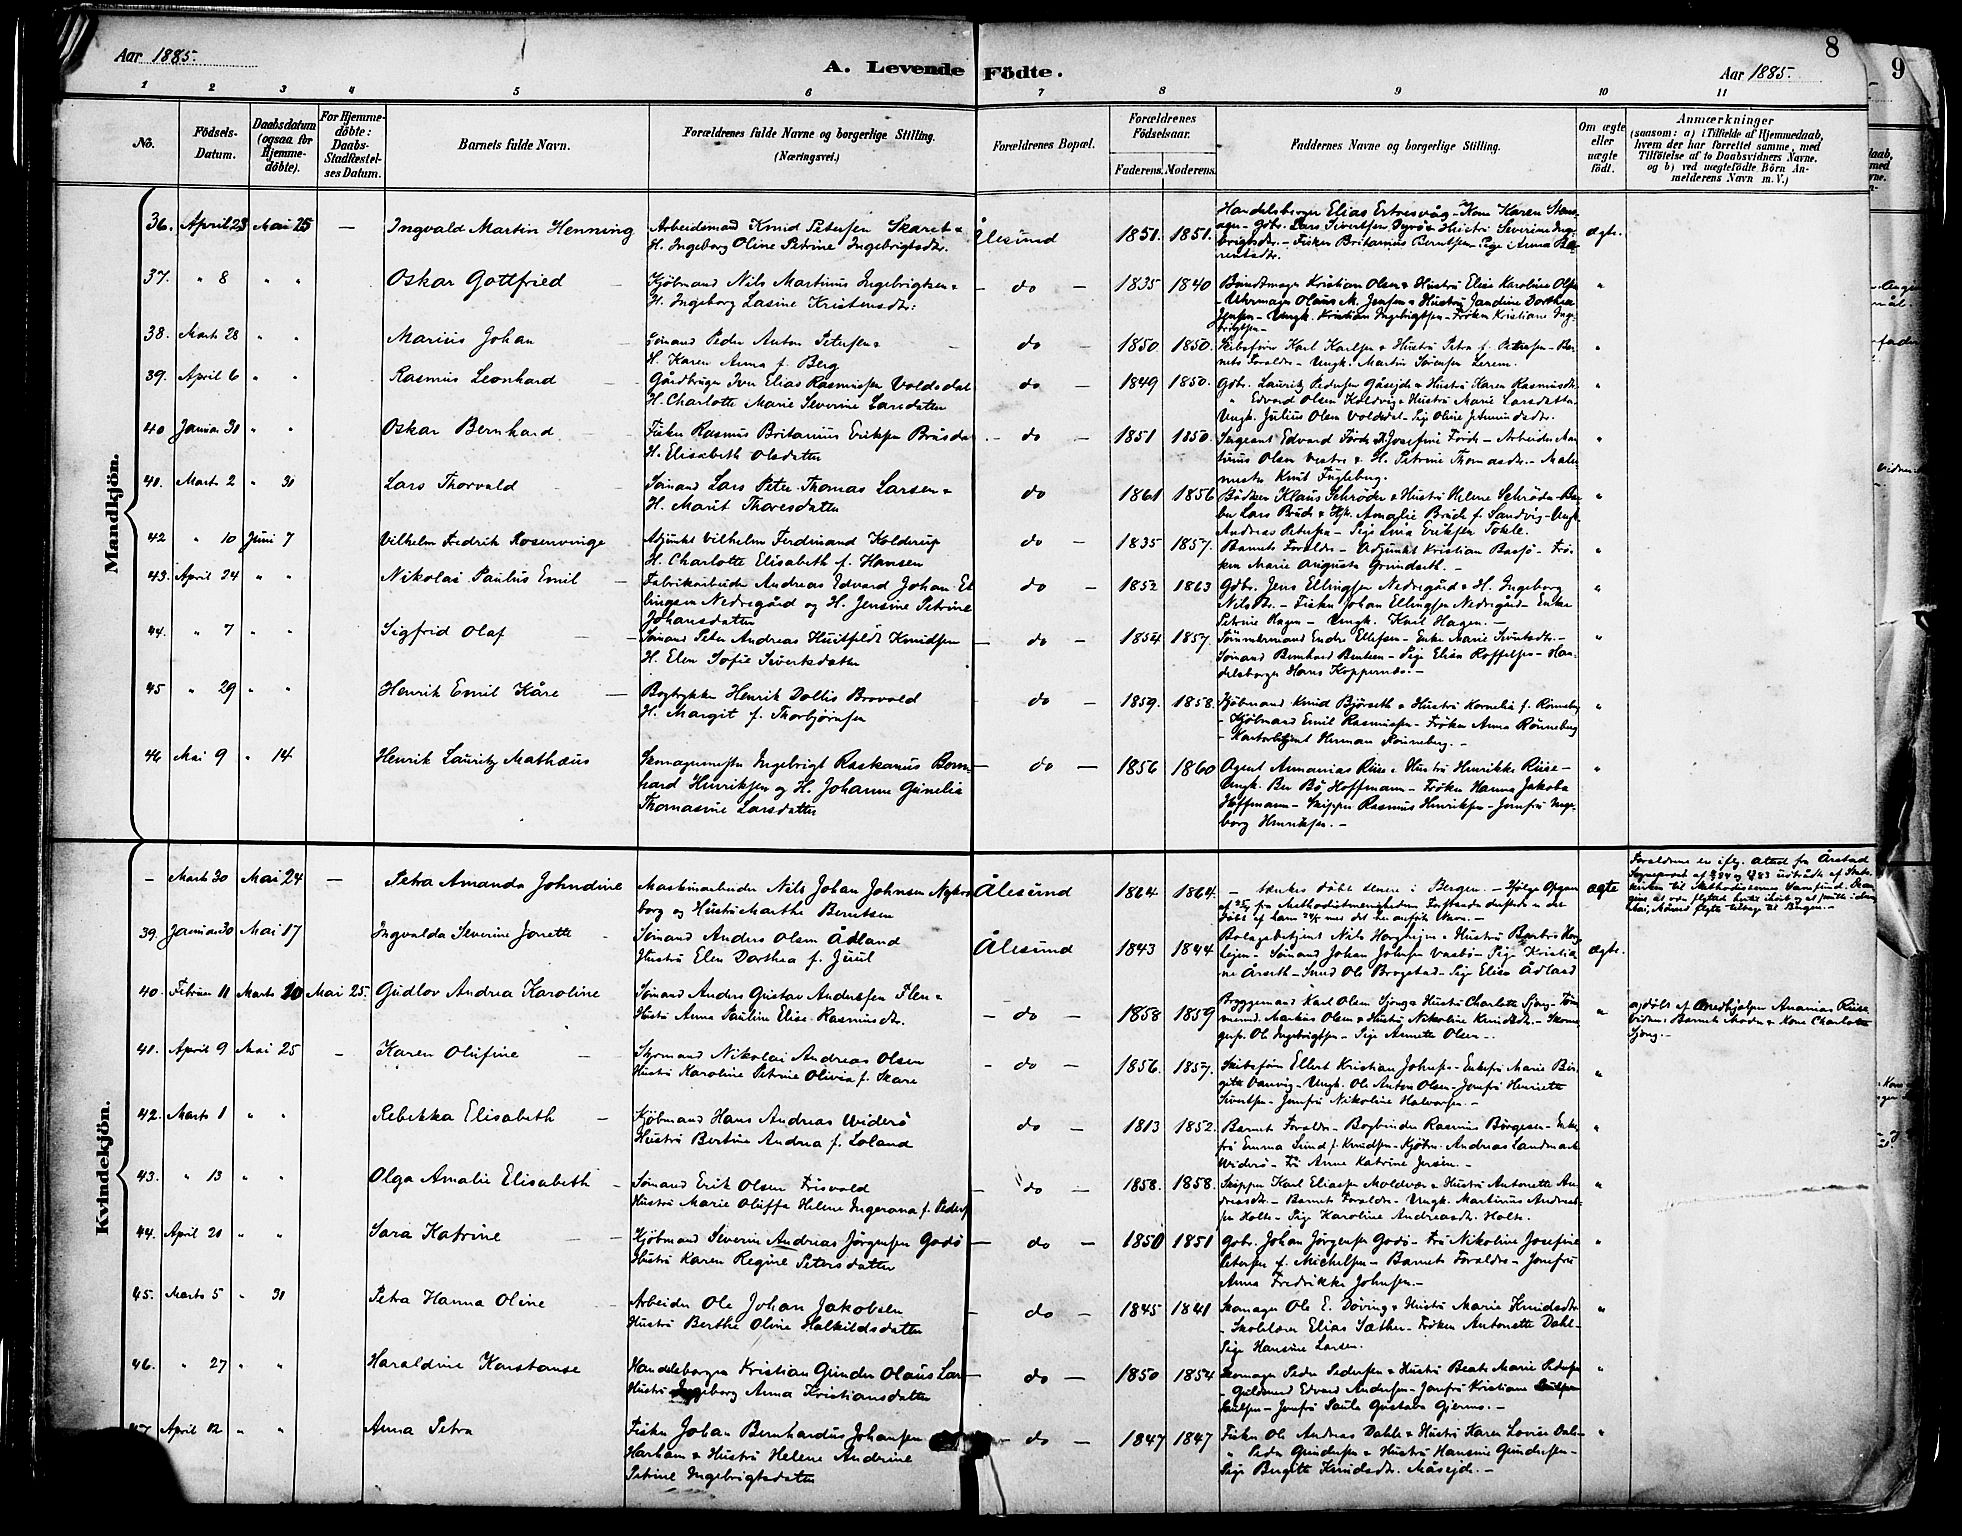 Aar 1885.
A. Levende Födte.
Aar 1885.
8
9
1 2 3 4 5 6 7 8 9 10 11
No.
Födsels-Datum.
Daabsdatum (ogsaa for Hjemme-döbte).
For Hjemme-döbte: Daabs-Stadfæstel-ses Datum.
Barnets fulde Navn.
Forældrenes fulde Navne og borgerlige Stilling. (Næringsvei.)
Forældrenes Bopæl.
Forældrenes Födselsaar.
Faderens. Moderens.
Faddernes Navne og borgerlige Stilling.
Om ægte eller uægte födt.
Anmærkninger
(saasom: a) i Tilfælde af Hjemmedaab,
hvem der har forrettet samme, med
Tilföielse af to Daabsvidners Navne,
og b) ved uægtefödte Börn An-
melderens Navn m. V.)
Mandkjön.
36. April 23 Mai 25 — Ingvald Martin Henning
Arbeidsmand Knud Petersen Skaret &
H. Ingeborg Oline Petrine Ingebrigtsdtr.
Ålesund 1851. 1851.
ægte.
37. " 8 " " Oskar Gottfried
Kjöbmand Nils Martinus Ingebrigtsen &
H. Ingeborg Lasine Kristensdtr:
do 1835 1840
Bundtmager Kristian Olsen & Hustru Elise Karoline Olsen
- Uhrmager Olaus M. Jensen & Hustru Jandine Dorthea
Jensen - Ungk. Kristian Ingebrigtsen - Fröken Kristiane Ing-
brigtsen -
"
38. Marts 28 " " Marius Johan
Sömand Peder Anton Petersen &
H. Karen Anna f. Berg
do 1850 1850.
Skibsförer Karl Karlsen & Hustru Petra f. Petersen - Bar-
nets Forældre - Ungk. Martin Sörensen Lerem.
"
39. April 6 " " Rasmus Leonhard
Gårdbruger Iver Elias Rasmussen Voldsdal
H. Charlotte Marie Severine Larsdatter
do 1849 1850.
Gdbr. Lauritz Pedersen Gåseide & Hustru Karen Rasmusdtr.
" Edvard Olsen Koldvig & Hustru Marie Larsdatter
Ungk. Julius Olsen Voldsdal
"
40 Januar 30 " " Oskar Bernhard
Fisker Rasmus Britanius Eriksen Brusdal
H. Elisabeth Olsdatter
do 1851 1850.
"
41. Marts 2 " 30 Lars Thorvald
Sömand Lars Peter Thomas Larsen &
H. Marit Thoresdatter
do 1861 1856
Bödker Klaus Schröder & Hustru Helene Schröder
Andreas Petersen - Pige Lina Eriksen Tokle.
"
42 " 10 Juni 7 Vilhelm Fredrik Rosenvinge
Adjunkt Vilhelm Ferdinand Kolderup
H. Charlotte Elisabeth f. Hansen
do 1835 1857.
Barnets Forældre - Adjunkt Kristian Bassö - Frö-
ken Marie Augusta Grundseth. -
"
43. April 24 " " Nikolai Paulus Emil
Fabrikarbeider Andreas Edvard Johan El-
lingsen Nedregård og H. Jensine Petrine
Johansdatter
do 1852 1863
Gdbr. Jens Ellingsen Nedregård & H. Ingeborg
Nilsdtr. - Fisker Johan Ellingsen Nedregård - Enke
Petrine Hagen - Ungk. Karl Hagen. -
"
44. " 7 " " Sigfrid Olaf
Sömand Peter Andreas Huitfeldt Knudsen
H. Elen Sofie Sivertsdatter
do 1854 1857.
Tömmermand Endre Ellefsen - Enke Marie Sivertsdtr. -
Sömand Bernhard Berntsen - Pige Elisa Roffelsen - Han-
delsborger Hans Koppernæs. -
"
45 " 29 " " Henrik Emil Kåre
Bogtrykker Henrik Dollis Brovold
H. Margit f. Thorbjörnsen
do 1859. 1858.
Kjöbmand Knud Björseth & Hustru Kornelia f. Rönneberg
- Kjöbmand Emil Rasmussen - Fröken Anna Rönneberg
- Kontorbetjent Herman Rönneberg. -
"
46 Mai 9 " 14 Henrik Lauritz Mathæus
Skomagermester Ingebrigt Raskanus Bern-
hard Henriksen og H. Johanne Gunelia
Thomasine Larsdatter
do 1856 1860
Agent Annanias Riise & Hustru Henrikke Riise -
Ungk. Ber Bö Hoffmann - Fröken Hanna Jakoba
Hoffmann - Skipper Rasmus Henriksen - Jomfru Inge-
borg Henriksen. -
"
Kvindekjön.
- Marts 30 Mai 24 — Petra Amanda Johndine
Maskinarbeider Nils Johan Johnsen Nykrs-
borg og Hustru Marthe Berntsen
Ålesund 1864 1864.
ægte
39. Januar 30 Mai 17 Ingvalda Severine Jonette
Sömand Anders Olsen Ådland
Hustru Elen Dorthea f. Juul
Ålesund 1843 1844
ægte.
40. Februar 11 Marts 20 Mai 25. Gudlov Andrea Karoline
Sömand Anders Gustav Andersen Flem &
Hustru Anne Pauline Elise Rasmusdtr.
do 1858 1859
Bryggemand Karl Olsen Sjong & Hustru Charlotte Sjong - Töm-
mermd. Markus Olsen & Hustru Nikoline Knudsdtr. - Skoma-
gersv. Ole Ingebrigtsen - Pige Annette Olsen -
"
a) döbt af Medhjælper Ananias Riise
Vidner Barnets Moder & Kone Charlotte
Sjong. -
41. April 9 Mai 25 - Karen Olufine
Styrmand Nikolai Andreas Olsen
Hustru Karoline Petrine Olivia f. Skare
do 1856. 1857.
Skibsförer Ellert Kristian Johnsen - Enkefru Marie Bir-
gitte Vanvig - Ungk. Ole Anton Olsen - Jomfru Henriette
Sivertsen - Jomfru Nikoline Halvorsen. -
"
42. Marts 1 " " Rebekka Elisabeth
Kjöbmand Hans Andreas Viderö
Hustru Bertine Andrea f. Loland
do 1813 1852.
Barnets Forældre - Bogbinder Rasmus Börgesen - Enke-
fru Emma Lund f. Knudsen - Kjöbm. Andreas Landmark
Viderö - Fru Anne Katrine Jensen. -
"
43. " 13 " " Olga Amalie Elisabeth
Sömand Erik Olsen Frisvold
Hustru Marie Oluffa Helene Ingerana f. Peders
do 1858. 1858.
Skipper Karl Eliassen Moldvær & Hustru Antonette An-
dreasdtr. - Barnets Forældre - Ungk. Martinus Andreas-
sen Holte - Pige Karoline Andreasdtr. Holte.
"
44. April 20 " " Sara Katrine
Kjöbmand Severin Andreas Jörgensen Godö
Hustru Karen Regine Petersdatter
do 1850 1851
Gdbr. Johan Jörgensen Godö - Fru Nikoline Josefine
Petersen f. Michelsen - Barnets Forældre - Jomfru
Anna Fredrikke Johnsen. -
"
45. Marts 5 " 30 Petra Hanna Oline
Arbeider Ole Johan Jakobsen
Hustru Berthe Oline Halkildsdatter
do 1845 1841
Skomager Ole E. Döving & Hustru Marie Knudsdtr.
- Skolelærer Elias Sæther - Fröken Antonette Dahl -
Pige Hansine Larsen.
"
46. " 27 " " Haraldine Konstanse
Handelsborger Kristian Gunder Olaus Lar-
Hustru Ingeborg Anna Kristiansdatter
do 1850 1854
Skomager Peder Pedersen & Hustru Beate Marie Pedersen
- Guldsmed Edvard Andersen - Jomfru Kristiane
- Jomfru Paula Gustava Gjerms. -
"
47 April 12 " " Anna Petra
Fisker Johan Bernhardus Johansen
Harham & Hustru Helene Anderine
Petrine Ingebrigtsdatter
do 1847 1847
Fisker Ole Andreas Dahle & Hustru Karen Lovise Dale -
" Peder Gundersen & Hustru Hansine Gundersen -
Pige Birgitte Knudsdtr. Måseide. -
"